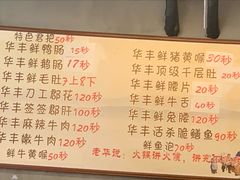 特色君把50秒
华丰鲜鸭肠15秒
华丰鲜鹅肠17秒
华丰鲜毛肚7上8下
华丰刀工郡花120秒
华丰签签郡肝100秒
华丰麻辣牛肉120秒
华丰嫩牛肉120秒
鲜牛黄喉50秒
华丰鲜猪黄喉30秒
华丰顶级千层肚20秒
华丰鲜腰片20秒
华丰鲜牛舌40秒
华丰兔腰120秒
华丰活杀脆鳝鱼90秒
鲜鱼泡70秒
老华说：火锅拼火候，拼